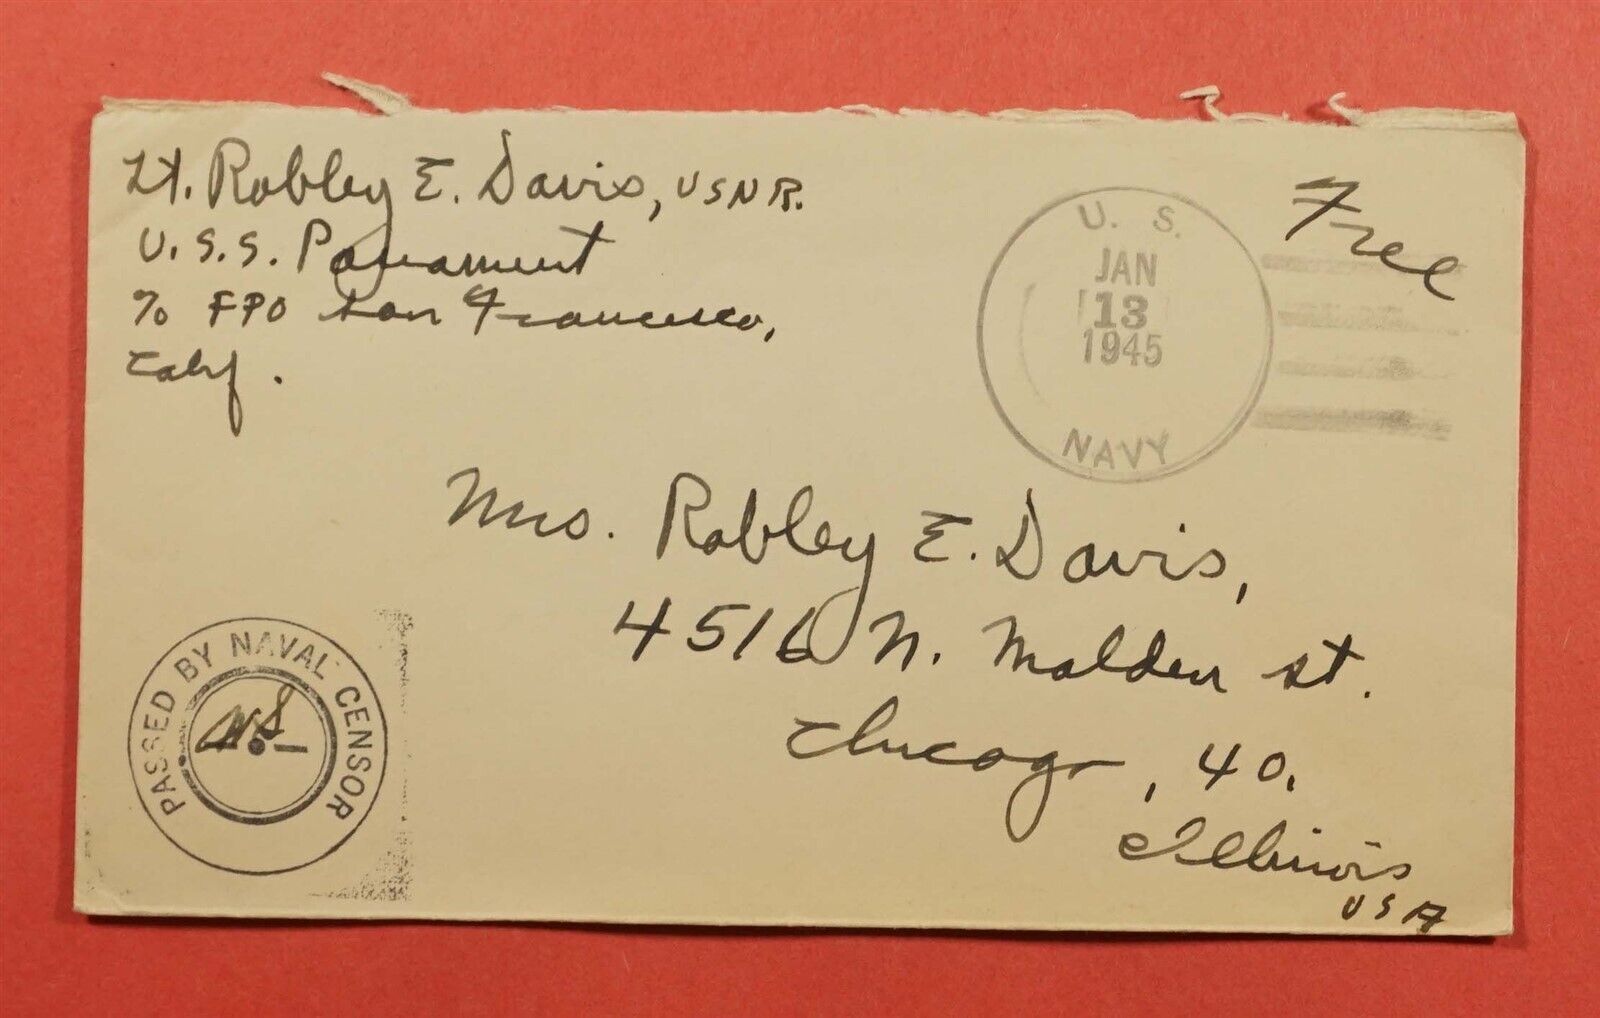 Lt. Robley E. Davis, USNR.
U.S.S. Panamint
% FPO San Francisco,
Calif.
Free
U. S.
JAN
13
1945
NAVY
Mrs. Robley E. Davis,
4516 N. Malden St.
Chicago, 40.
Illinois
USA
PASSED BY NAVAL CENSOR